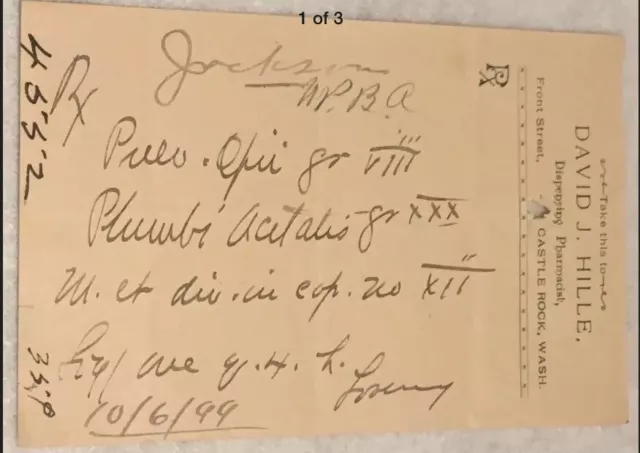 1 of 3
Take this to
DAVID J. HILLE,
Dispensing Pharmacist,
Front Street, CASTLE ROCK, WASH.
Rx
4552
Jackson
Rx
Pulv. Opii gr VIII
Plumbi Acetatis gr XXX
M. et div. in cap. no XII
Sig/ one q. 4. h.
10/6/99